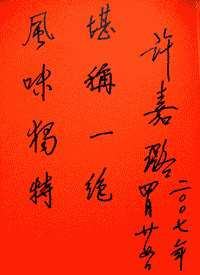 風味獨特
堪稱一絶
許嘉璐
二〇〇七年
四月廿五日